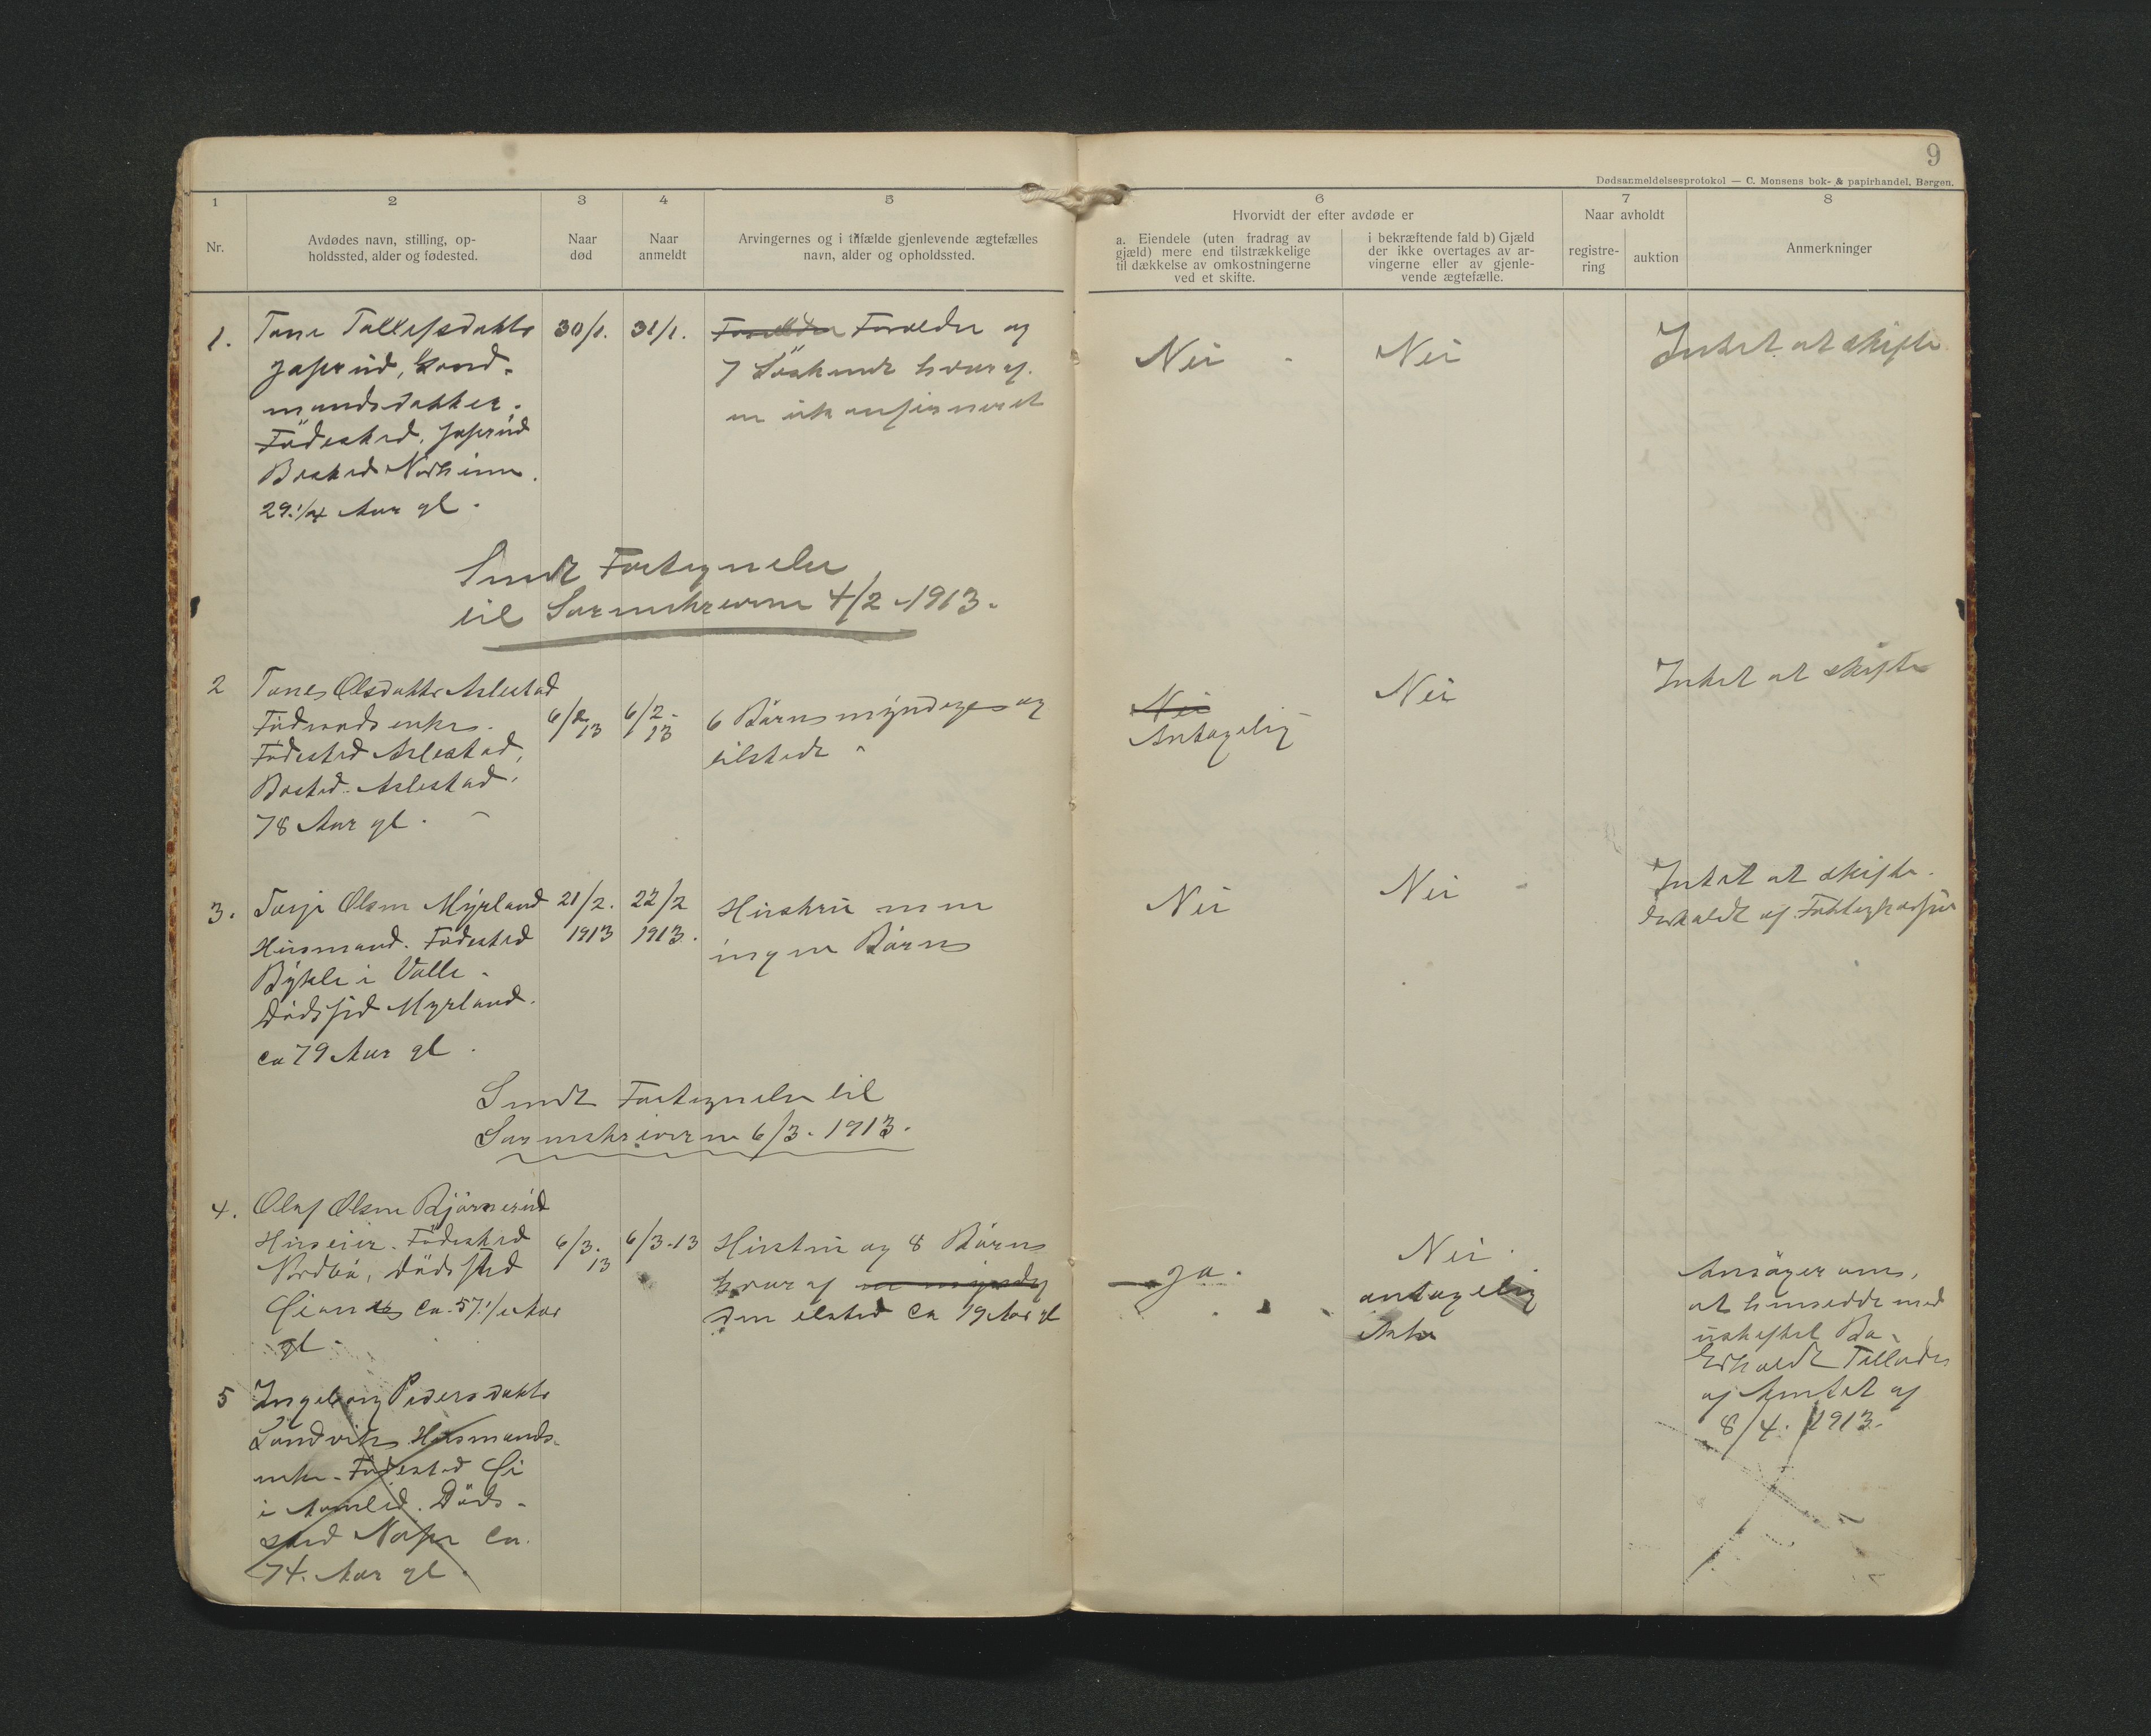 9
Dødsanmeldelsesprotokol — C. Monsens bok- & papirhandel, Bergen.
1 2 3 4 5 6 7 8
Nr.
Avdødes navn, stilling, op-
holdssted, alder og fødested.
Naar
død
Naar
anmeldt
Arvingernes og i tilfælde gjenlevende ægtefælles
navn, alder og opholdssted.
Hvorvidt der efter avdøde er
a. Eiendele (uten fradrag av
gjæld) mere end tilstrækkelige
til dækkelse av omkostningerne
ved et skifte.
i bekræftende fald b) Gjæld
der ikke overtages av ar-
vingerne eller av gjenle-
vende ægtefælle.
Naar avholdt
registre-
ring
auktion
Anmerkninger
1. Tone Tallefsdatter 30/1. 31/1. Forældre og
Jasrud, Gaard-
7 Söskende hvoraf
mandsdatter.
en ukonfirmeret
Födested, Jasrud
Bosted
29 1/4 Aar gl.
Nei Nei Intet at skifte
Sendt Fortegnelse
til Sorenskriveren 4/2 - 1913.
2 Tone Olsdatter Aslestad
Föderaadsenke.
6/2 13 6/2- 13
6 Börn myndige og
Födested Aslestad,
tilstede
Bosted Aslestad.
78 Aar gl.
Nei
Antagelig
Nei
Intet at skifte
3. Tarje Olsen Myrland 21/2. 22/2 Hustru men
Husmand. Födested 1913 1913. ingen Börn
Bykle i Valle.
Dödssted Myrland.
ca 79 Aar gl.
Nei Nei Intet at skifte.
Underholdt af Fattigkassen
Sendt Fortegnelse til
Sorenskriveren 6/3 - 1913.
4. Olaf Olsen Bjørnerud
Huseier. Födested 6/3. 13 6/3-13 Hustru og 8 Börn
Nordbö, Dödssted
hvoraf en myndig
ca. 57 1/2 Aar
den ældste ca 19 Aar gl
gl
Ja.
Nei.
antagelig
Ansöger om,
at hensidde med
uskiftet Bo.
Erholdt Tilladelse
af Amtet af
8/4. 1913.
5 Ingeborg Pedersdatter
Sandvik Husmands-
enke. Födested
i Aamlid. Döds-
sted ca.
74. Aar gl.